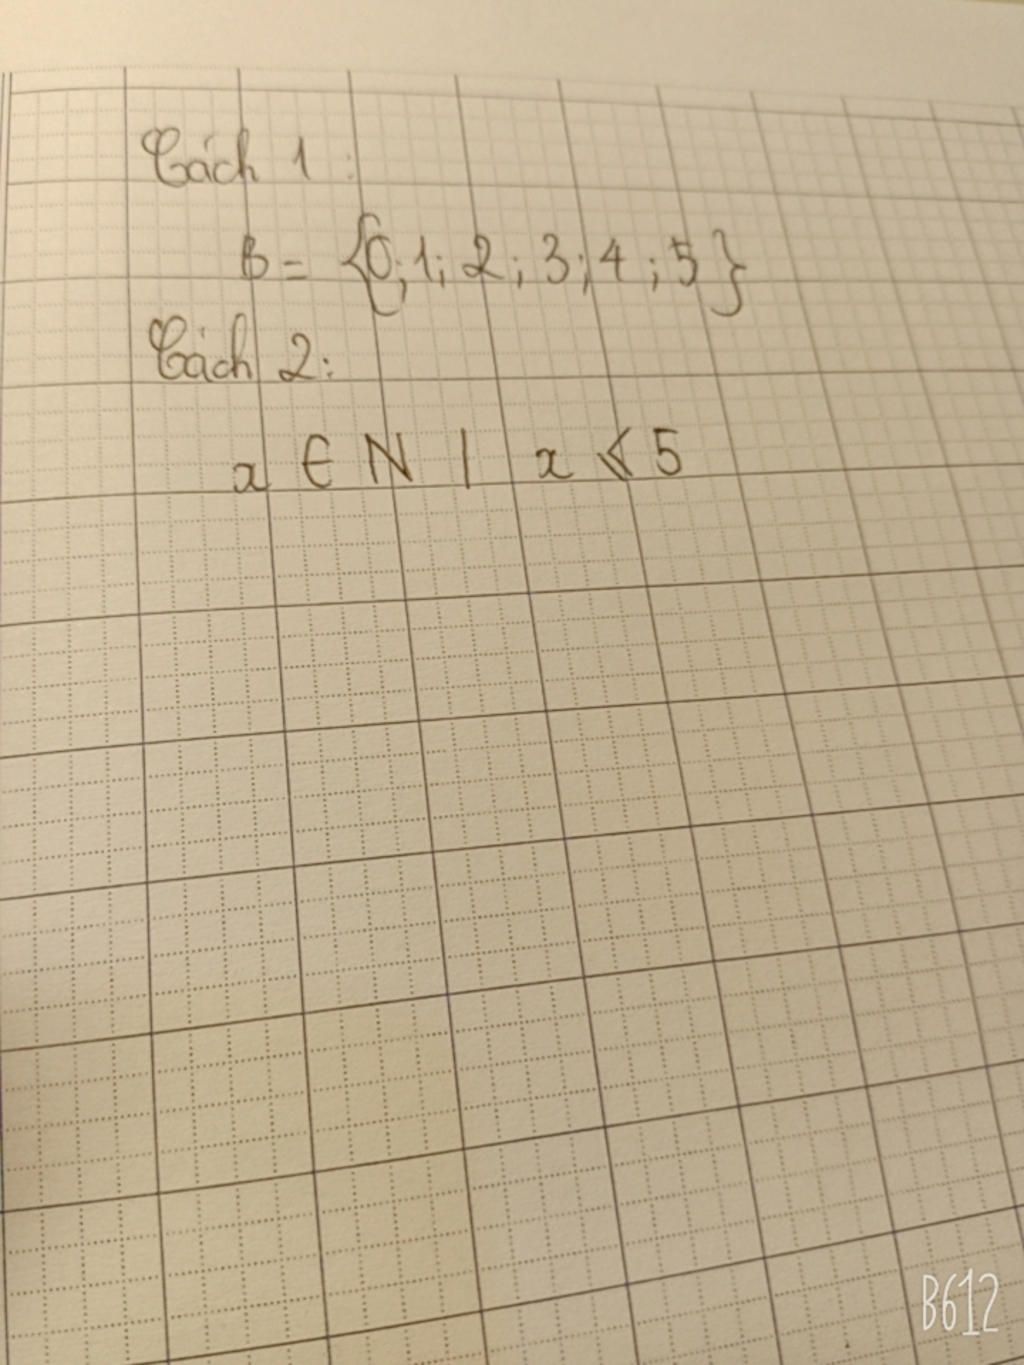 Cách 1:
B = {0; 1; 2; 3; 4; 5}
Cách 2:
x ∈ N | x ⩽ 5
B612